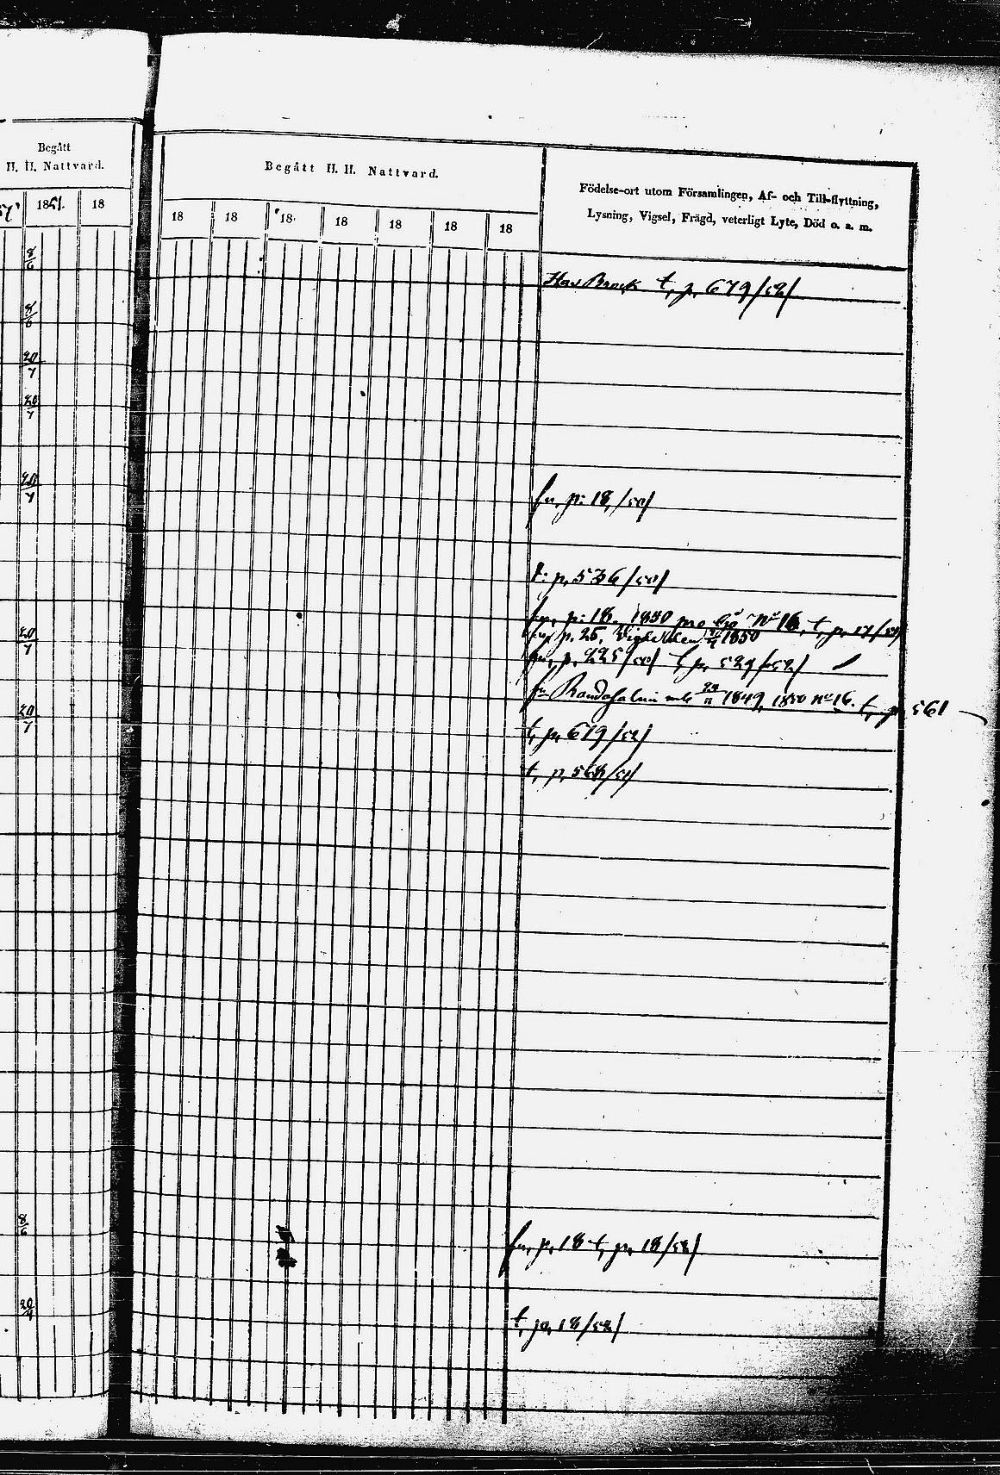 Begått
H. H. Nattvard.
1851. 18
8/6
8/6
20/7
20/7
20/7
20/7
20/7
8/6
20/7
Begått H. H. Nattvard.
18 18 18 18 18 18 18
Födelse-ort utom Församlingen, Af- och Till-flyttning,
Lysning, Vigsel, Frägd, veterligt Lyte, Död o. a. m.
t, p. 679/52/
fr, p. 18,/50/
t: p. 536/50/
fr, p. 18 1850 pro No 16, t, p. 17/
fr, p. 25, 1850
fr, p. 225/50/ t, p. 529/52/
fr Randasalmi 1849, 1850 No 16. t, p. 561
t, p. 679/52/
t, p. 568/52/
fr, p. 18 t, p. 18/52/
t, p. 18/52/